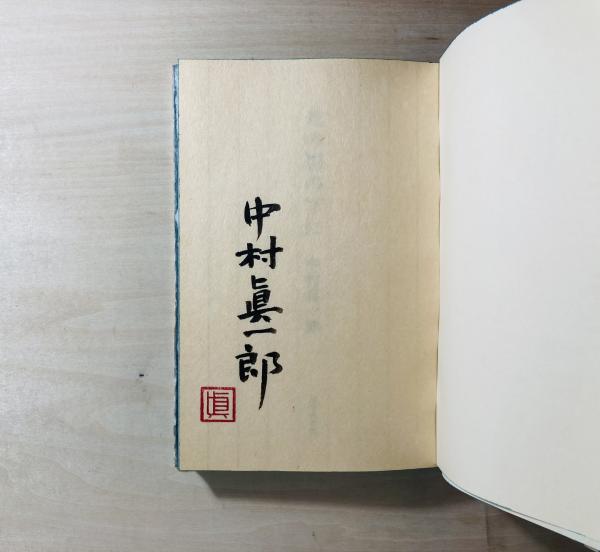 中村眞一郎
眞